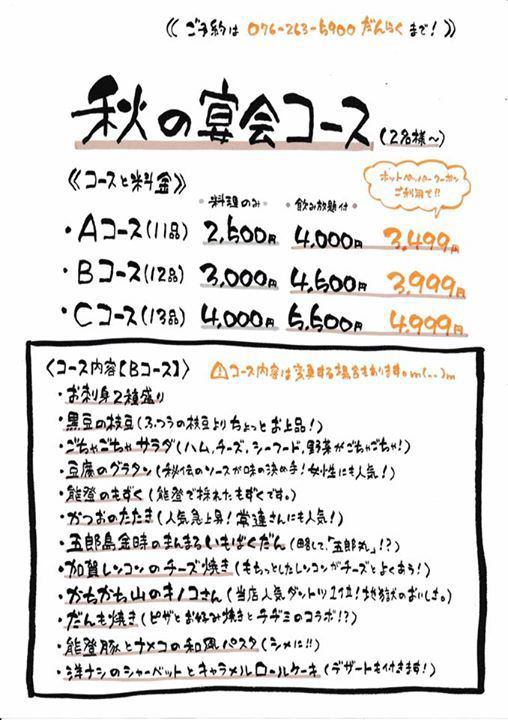 《 ご予約は 076-263-5900 だんらく まで! 》
秋の宴会コース(2名様〜)
《コースと料金》
・料理のみ・ ・飲み放題付・
ホットペッパークーポン
ご利用で!!
・Aコース(11品) 2,500円 4,000円 3,499円
・Bコース(12品) 3,000円 4,500円 3,999円
・Cコース(13品) 4,000円 5,500円 4,999円
〈コース内容【Bコース】〉 ⚠コース内容は変更する場合もあります。m(_ _)m
・お刺身2種盛り
・黒豆の枝豆(ふつうの枝豆よりちょっとお上品!)
・ごちゃごちゃサラダ(ハム、チーズ、シーフード、野菜がごちゃごちゃ!)
・豆腐のグラタン(秘伝のソースが味の決め手!女性にも人気!)
・能登のもずく(能登で採れたもずくです。)
・かつおのたたき(人気急上昇!常連さんにも人気!)
・五郎島金時のまんまるいもばくだん(略して、「五郎丸」!?)
・加賀レンコンのチーズ焼き(もちっとしたレンコンがチーズとよくあう!)
・かちかち山のキノコさん(当店人気ダントツ1位!地獄のおいしさ。)
・だんも焼き(ピザとお好み焼きとチヂミのコラボ!?)
・能登豚とナメコの和風パスタ(シメに!!)
・洋ナシのシャーベットとキャラメルロールケーキ(デザートも付きます!)